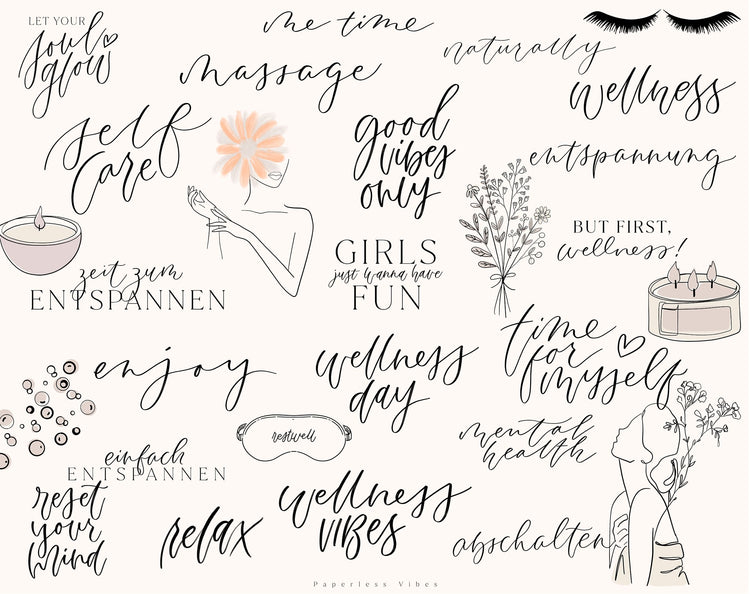 LET YOUR
soul
glow
me time
naturally
massage
wellness
self
care
good
vibes
only
entspannung
BUT FIRST,
wellness!
zeit zum
ENTSPANNEN
GIRLS
just wanna have
FUN
time
for
myself
enjoy
wellness
day
restwell
mental
health
einfach
ENTSPANNEN
reset
your
mind
relax
wellness
VIBES
abschalten
Paperless Vibes